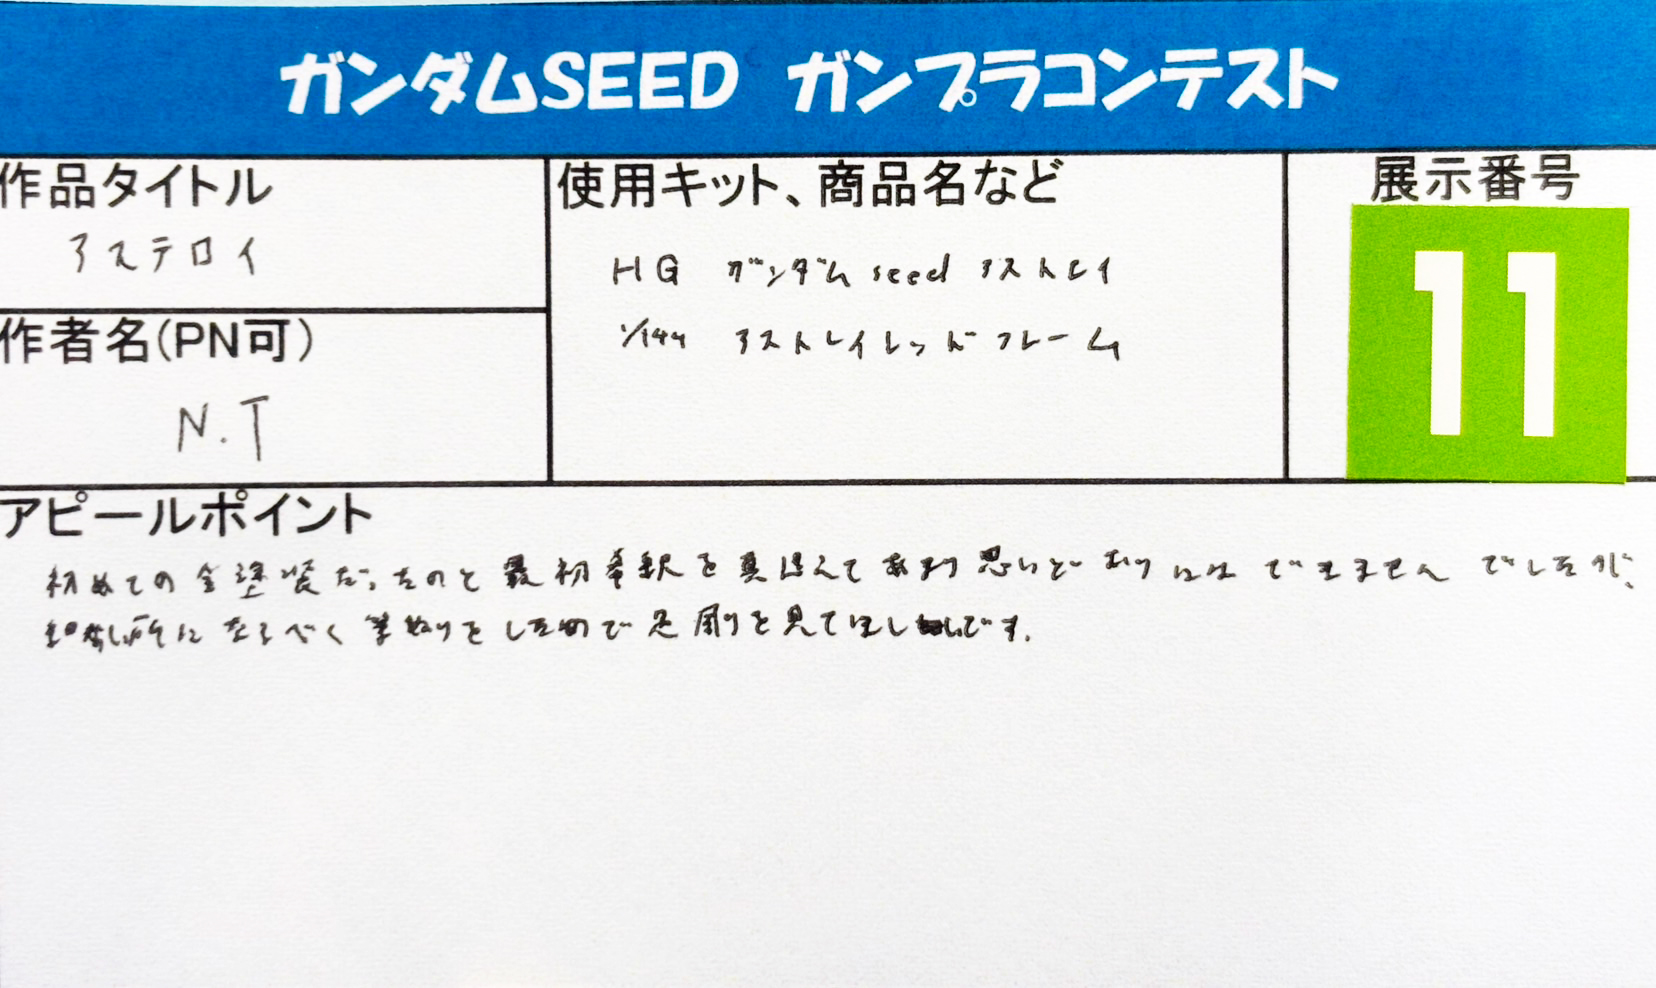 ガンダムSEED ガンプラコンテスト
作品タイトル
アステロイ
使用キット、商品名など
HG ガンダムseed アストレイ
1/144 アストレイレッドフレーム
展示番号
11
作者名(PN可)
N.T
アピールポイント
初めての全塗装だったのと最初希釈を間違えてあまり思いどおりにはできませんでしたが、
細かい所になるべく筆ぬりをしたので是非を見てほしいです。